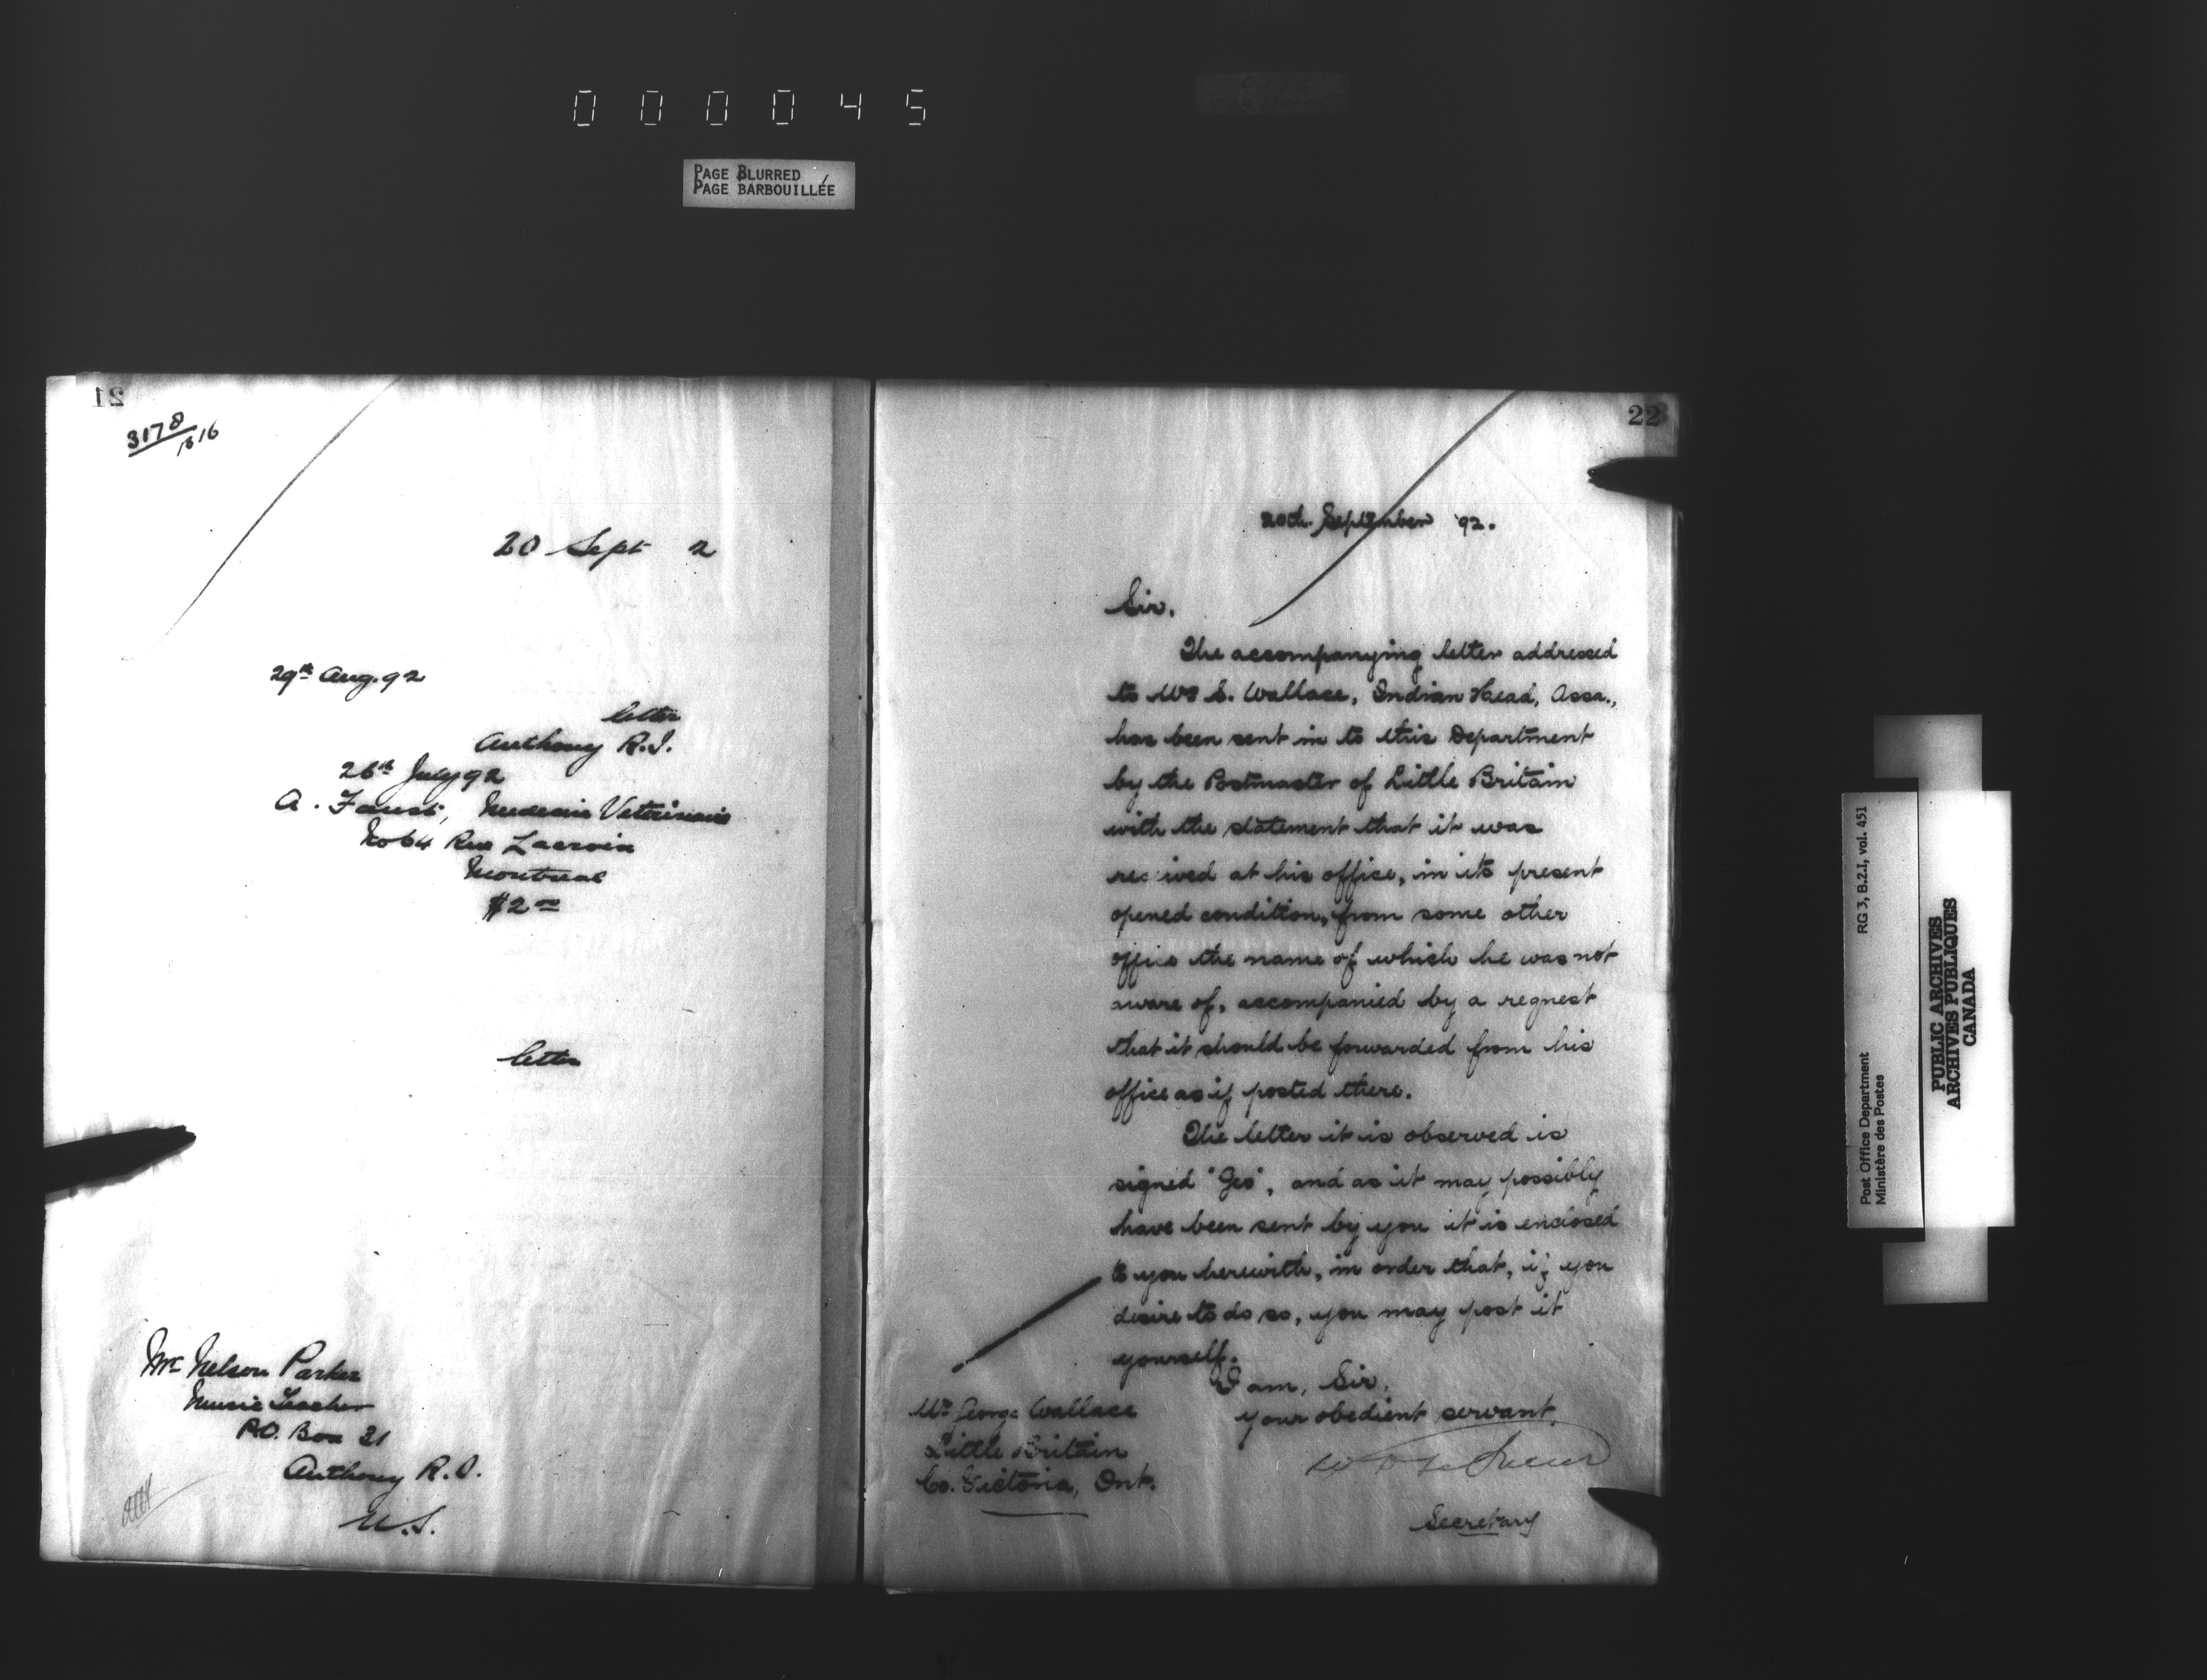 000045
PAGE BLURRED
PAGE BARBOUILLÉE
21
3178
20 Sept 2
29th Aug. 92
letter
Anthony R.I.
26th July 92
A. Faust, Medecin Veterinaire
No 64 Rue Lacroix
Montreal
$2 00
letter
Mr Nelson Parker
Music Teacher
P.O. Box 31
Anthony R.I.
U.S.
22
20th September '92.
Sir,
The accompanying letter addressed
to Mr S. Wallace, Indian Head, Assa.,
has been sent in to this Department
by the Postmaster of Little Britain
with the statement that it was
received at his office, in its present
opened condition, from some other
office the name of which he was not
aware of, accompanied by a request
that it should be forwarded from his
office as if posted there.
The letter it is observed is
signed "Geo", and as it may possibly
have been sent by you it is enclosed
to you herewith, in order that, if you
desire to do so, you may post it
yourself.
I am, Sir,
Your obedient servant,
Secretary
Mr George Wallace
Little Britain
Co. Victoria, Ont.
Post Office Department
Ministère des Postes
RG 3, B.2.I, vol. 451
PUBLIC ARCHIVES
ARCHIVES PUBLIQUES
CANADA